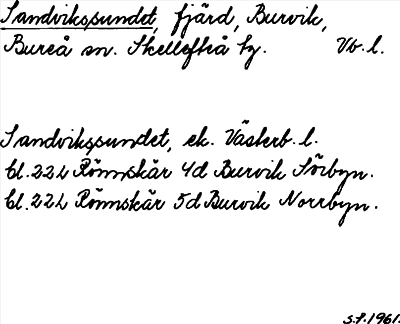 Sandvikssundet, fjärd, Burvik,
Bureå sn. Skellefteå tg. Vb. l.
Sandvikssundet, ek. Västerb. l.
bl. 22L Rönnskär 4d Burvik Sörbyn.
bl. 22L Rönnskär 5d Burvik Norrbyn.
s.f. 1961.